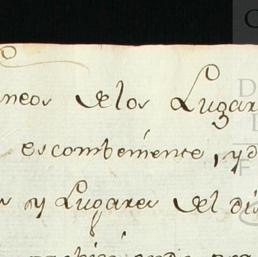 neos de los Lugar
es combeniente, y d
s y Lugares del di